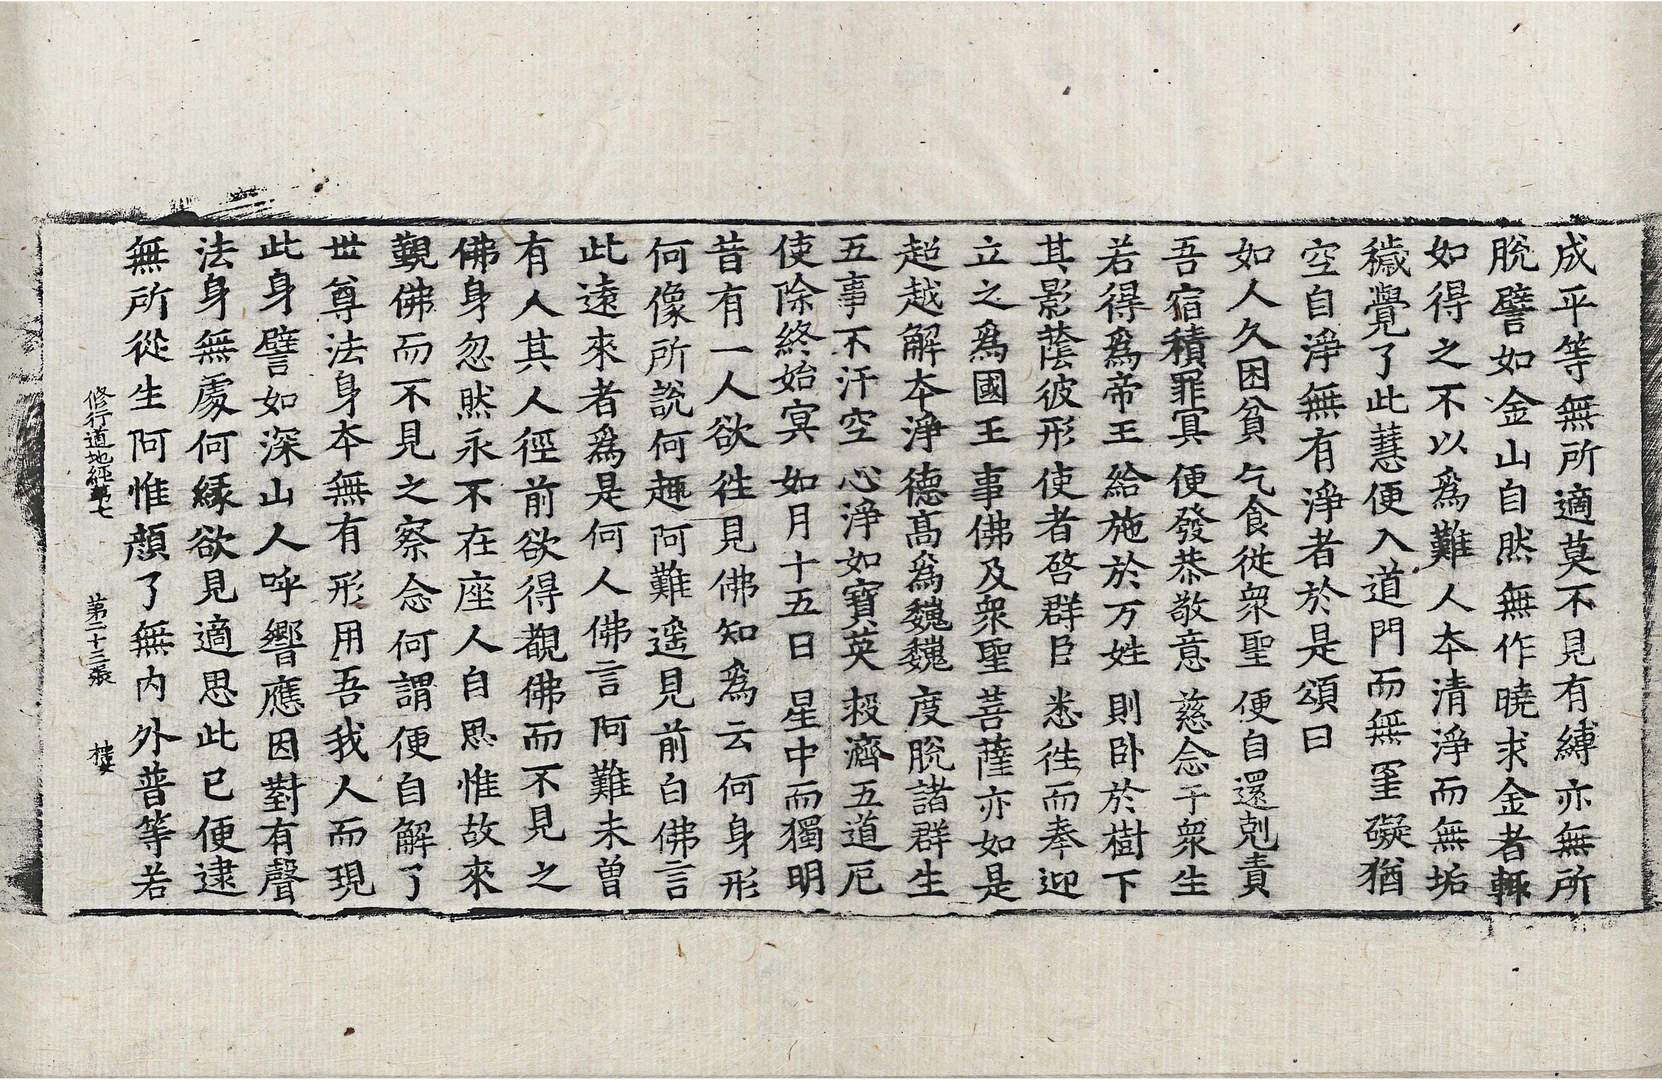 成平等無所適莫不見有縛亦無所
脫譬如金山自然無作曉求金者輒
如得之不以爲難人本清淨而無垢
穢覺了此慧便入道門而無罣礙猶
空自淨無有淨者於是頌曰
如人久困貧 乞食從衆聖 便自還剋責
吾宿積罪冥 便發恭敬意 慈念于衆生
若得爲帝王 給施於万姓 則卧於樹下
其影蔭彼形 使者啓群臣 悉徃而奉迎
立之爲國王 事佛及衆聖 菩薩亦如是
超越解本淨 德高爲巍巍 度脫諸群生
五事不汙空 心淨如寶英 救濟五道厄
使除終始冥 如月十五日 星中而獨明
昔有一人欲徃見佛知爲云何身形
何像所說何趣阿難遥見前白佛言
此遠來者爲是何人佛言阿難未曾
有人其人徑前欲得覩佛而不見之
佛身忽然永不在座人自思惟故來
覲佛而不見之察念何謂便自解了
世尊法身本無有形用吾我人而現
此身譬如深山人呼響應因對有聲
法身無處何緣欲見適思此已便逮
無所從生阿惟顔了無内外普等若
修行道地經第七 第二十三張 樓